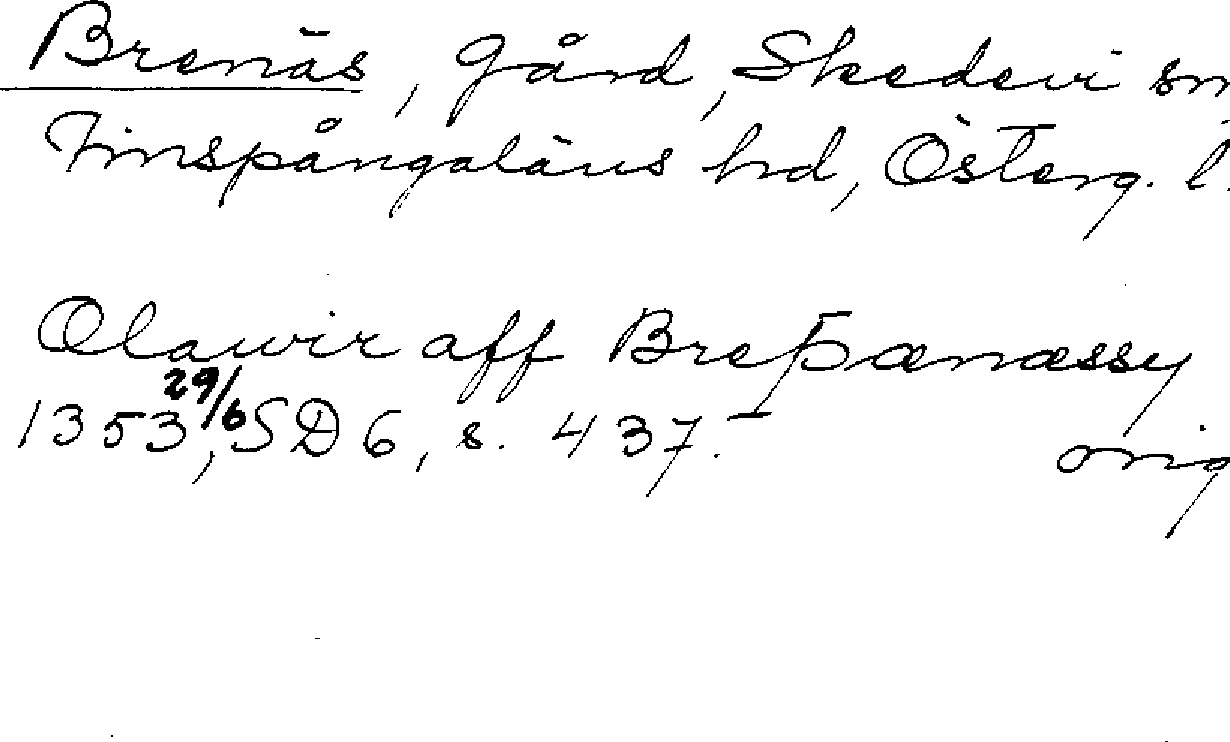 Brenäs, gård, Skedevi sn,
Finspångaläns hd, Österg. l.
Olawir aff Breþænæssy
1353 29/6, SD 6, s. 437. orig